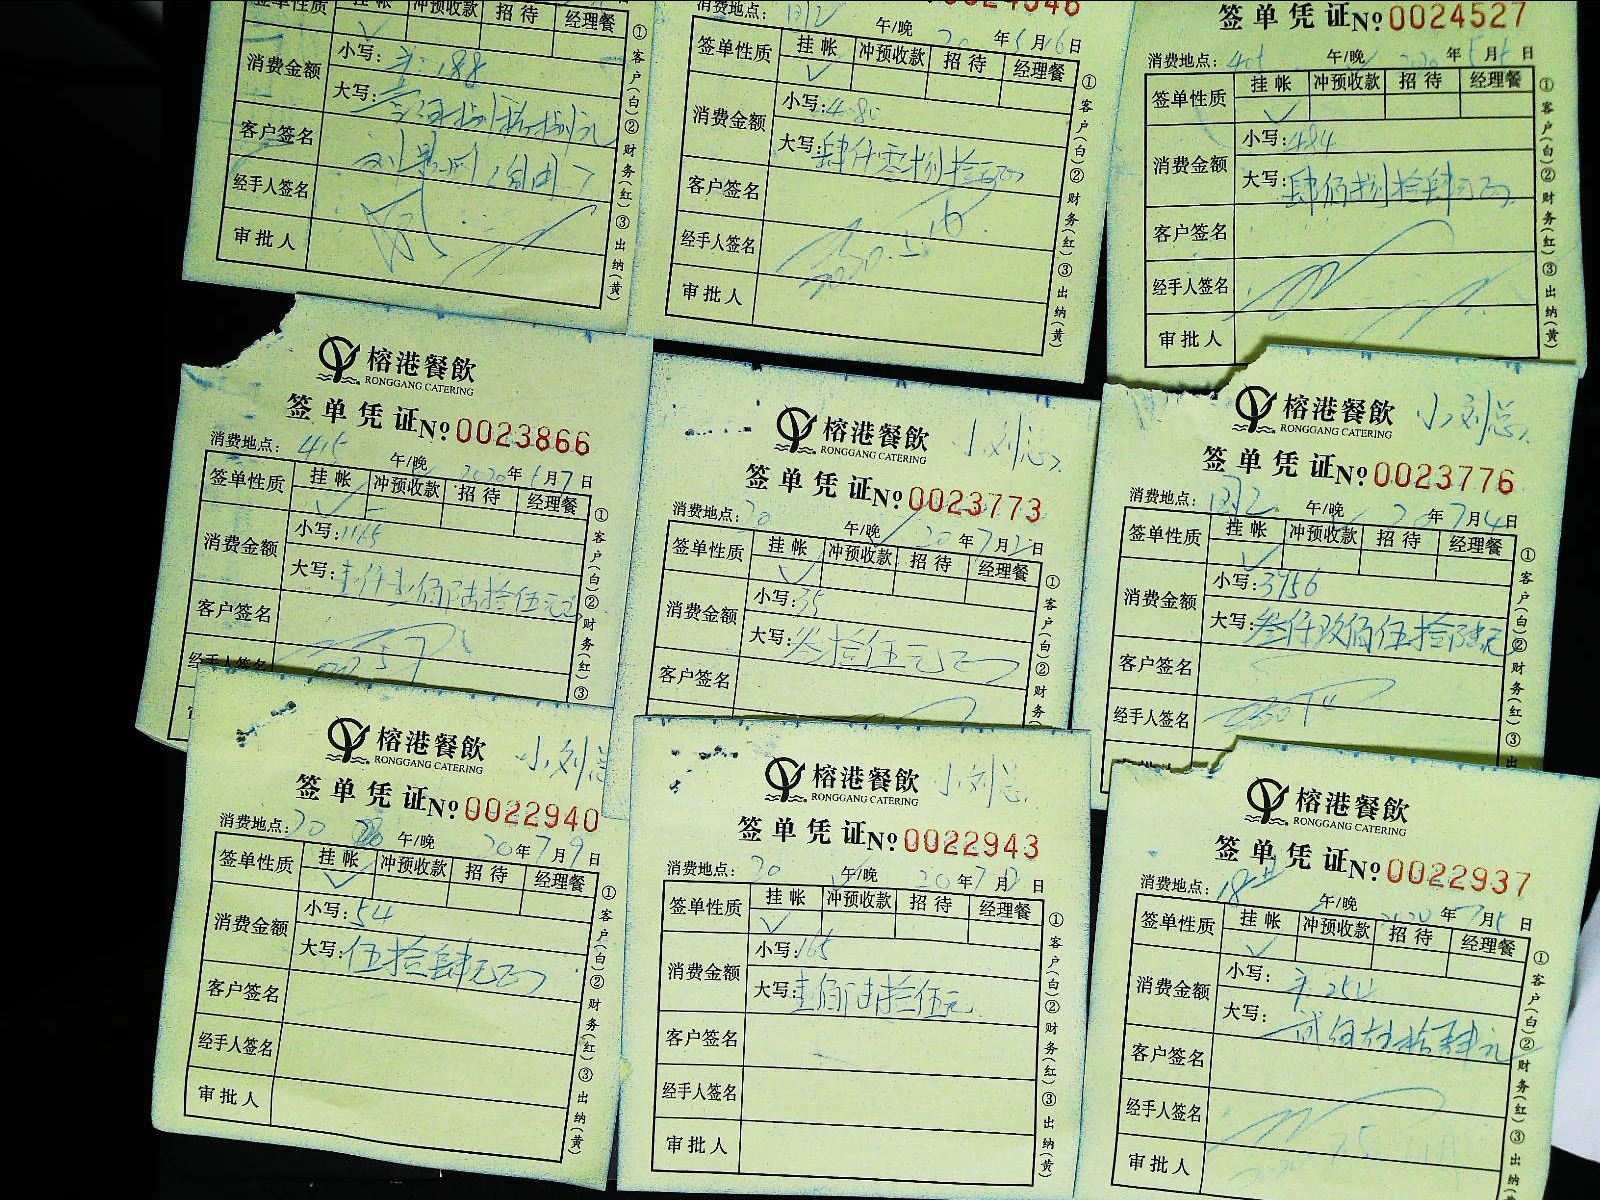 签单性质 挂帐 冲预收款 招待 经理餐
消费金额 小写: 188
大写:
客户签名
经手人签名
审批人
①客户(白)②财务(红)③出纳(黄)
消费地点:
午/晚 20年5月16日
签单性质 挂帐 冲预收款 招待 经理餐
消费金额 小写:4080
大写:肆仟零捌拾元
客户签名
经手人签名
审批人
①客户(白)②财务(红)③出纳(黄)
签单凭证№0024527
消费地点: 午/晚 2020年5月 日
签单性质 挂帐 冲预收款 招待 经理餐
消费金额 小写:484
大写:肆佰捌拾肆元
客户签名
经手人签名
审批人
①客户(白)②财务(红)③出纳(黄)
榕港餐飲
RONGGANG CATERING
签单凭证№0023866
消费地点:415 午/晚 2020年 月7日
签单性质 挂帐 冲预收款 招待 经理餐
消费金额 小写:1165
大写:壹仟壹佰陆拾伍元
客户签名
经手人签名
①客户(白)②财务(红)③
榕港餐飲 小刘总
RONGGANG CATERING
签单凭证№0023773
消费地点: 午/晚 20年7月 日
签单性质 挂帐 冲预收款 招待 经理餐
消费金额 小写:35
大写:叁拾伍元
客户签名
①客户(白)②财务
榕港餐飲 小刘总
RONGGANG CATERING
签单凭证№0023776
消费地点: 午/晚 20年7月4日
签单性质 挂帐 冲预收款 招待 经理餐
消费金额 小写:3956
大写:叁仟玖佰伍拾陆元
客户签名
经手人签名
①客户(白)②财务(红)③
榕港餐飲 小刘总
RONGGANG CATERING
签单凭证№0022940
消费地点: 午/晚 20年7月9日
签单性质 挂帐 冲预收款 招待 经理餐
消费金额 小写:54
大写:伍拾肆元
客户签名
经手人签名
审批人
①客户(白)②财务(红)③出纳(黄)
榕港餐飲 小刘总
RONGGANG CATERING
签单凭证№0022943
消费地点: 午/晚 20年7月 日
签单性质 挂帐 冲预收款 招待 经理餐
消费金额 小写:165
大写:壹佰陆拾伍元
客户签名
经手人签名
审批人
①客户(白)②财务(红)③出纳(黄)
榕港餐飲
RONGGANG CATERING
签单凭证№0022937
消费地点: 午/晚 2020年7月 日
签单性质 挂帐 冲预收款 招待 经理餐
消费金额 小写: 254
大写:贰佰伍拾肆元
客户签名
经手人签名
审批人
①客户(白)②财务(红)③出纳